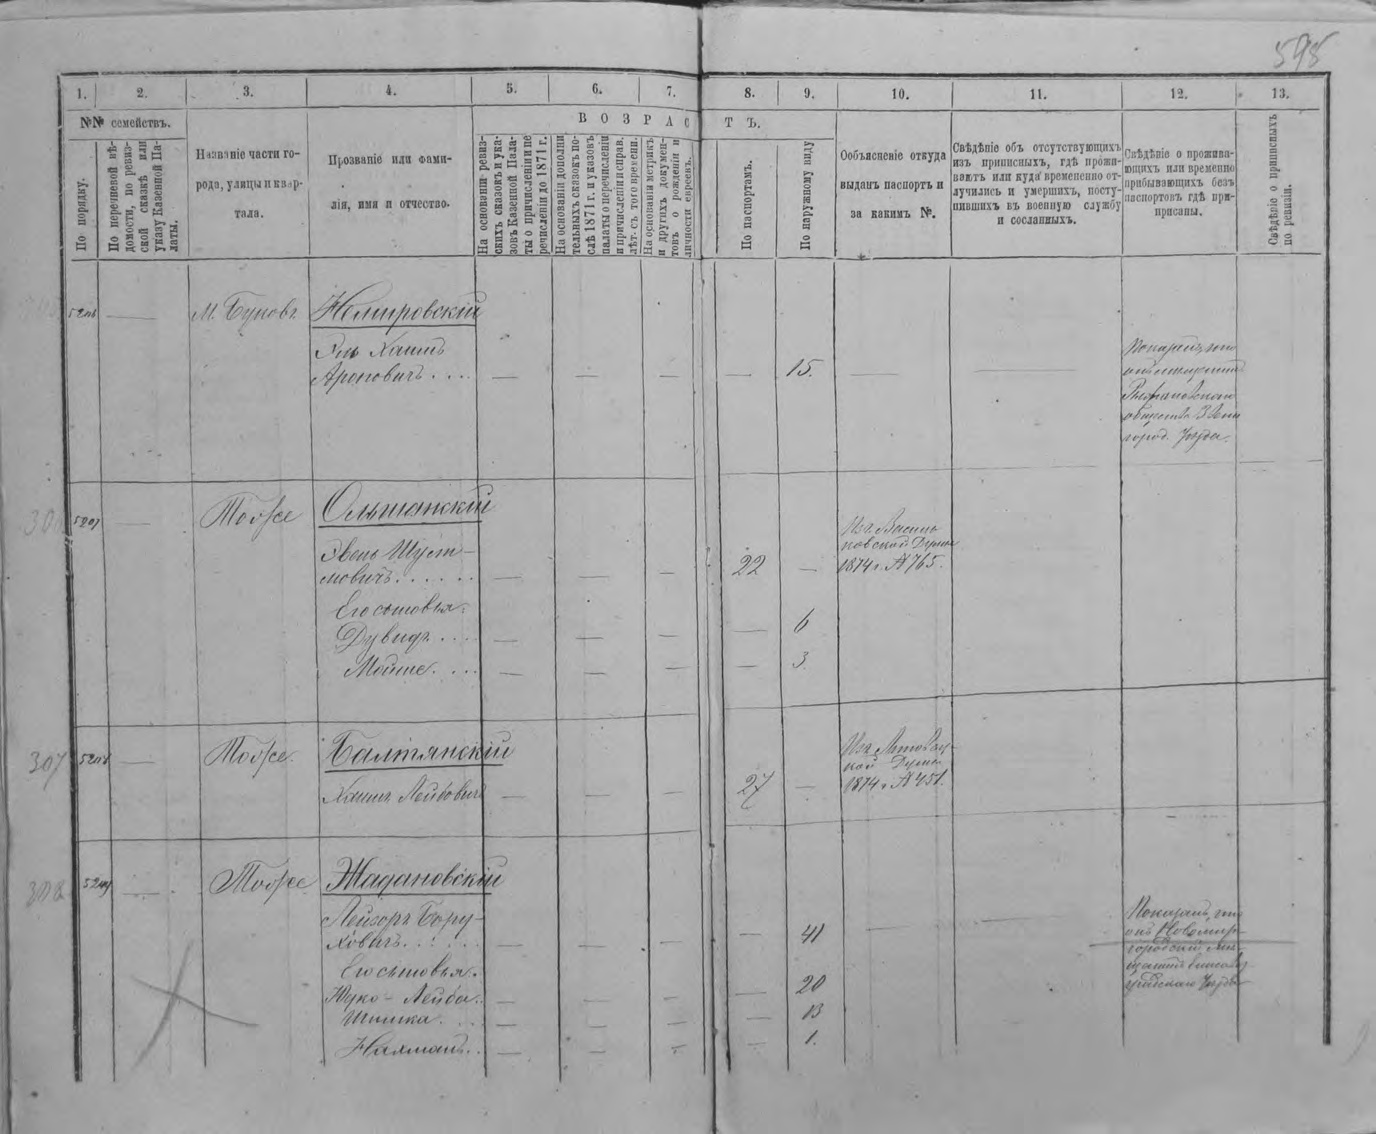 598
1. 2. 3. 4. 5. 6. 7. 8. 9. 10. 11. 12. 13.
№№ семействъ.
По порядку.
По перечневой вѣ-
домости, по ревиз-
ской сказкѣ или
указу Казенной Па-
латы.
Названіе части го-
рода, улицы и квар-
тала.
Прозваніе или фами-
лія, имя и отчество.
ВОЗРАСТЪ.
На основаніи ревиз-
скихъ сказокъ и ука-
зовъ Казенной Пала-
ты о причисленіи и пе
речисленіи до 1871 г.
На основаніи дополни
тельныхъ сказокъ по-
слѣ 1871 г. и указовъ
палаты о перечисленіи
и причисленіи и справ.
лѣт. съ того времени.
На основаніи метрикъ
и другихъ докумен-
товъ о рожденіи и
личности евреевъ.
По паспортамъ.
По наружному виду
Объясненіе откуда
выданъ паспортъ и
за какимъ №.
Свѣдѣніе объ отсутствующихъ
изъ приписныхъ, гдѣ прожи-
ваютъ или куда временно от-
лучились и умершихъ, посту-
пившихъ въ военную службу
и сосланныхъ.
Свѣдѣніе о прожива-
ющихъ или временно
прибывающихъ безъ
паспортовъ гдѣ при-
писаны.
Свѣдѣніе о приписныхъ
по ревизіи.
5206 — М. Буковъ Немировскій
Хаимъ
Ароновичъ . . . — — — — 15. — —
Показалъ, что
онъ
общества Звени
город. Уѣзда.
5207 — Тоже Ольшанскій
Шули-
мовичъ . . . . . . — — — 22 —
Изъ Василь
ковской Думы
1874 г. № 765.
Его сыновья:
Дувидъ . . . — — — — 6
Мойше . . . — — — — 3.
307 5208 — Тоже. Балтянскій
Хаимъ Лейбовичъ — — — 27 —
кой Думы
1874 г. № 451.
308 5209 — Тоже Жадановскій
Лейзоръ Бору-
ховичъ . . . . . — — — — 41 — —
Показалъ, что
онъ Новомир-
городскій
Уѣзда
Его сыновья.
Лейба . . — — — — 20
Шлиома . . . — — — — 13
Нахманъ . . — — — — 1.